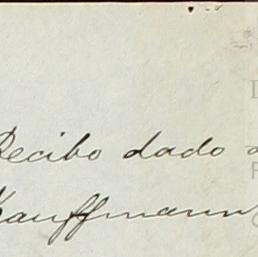 Recibo dado a
Kauffmann